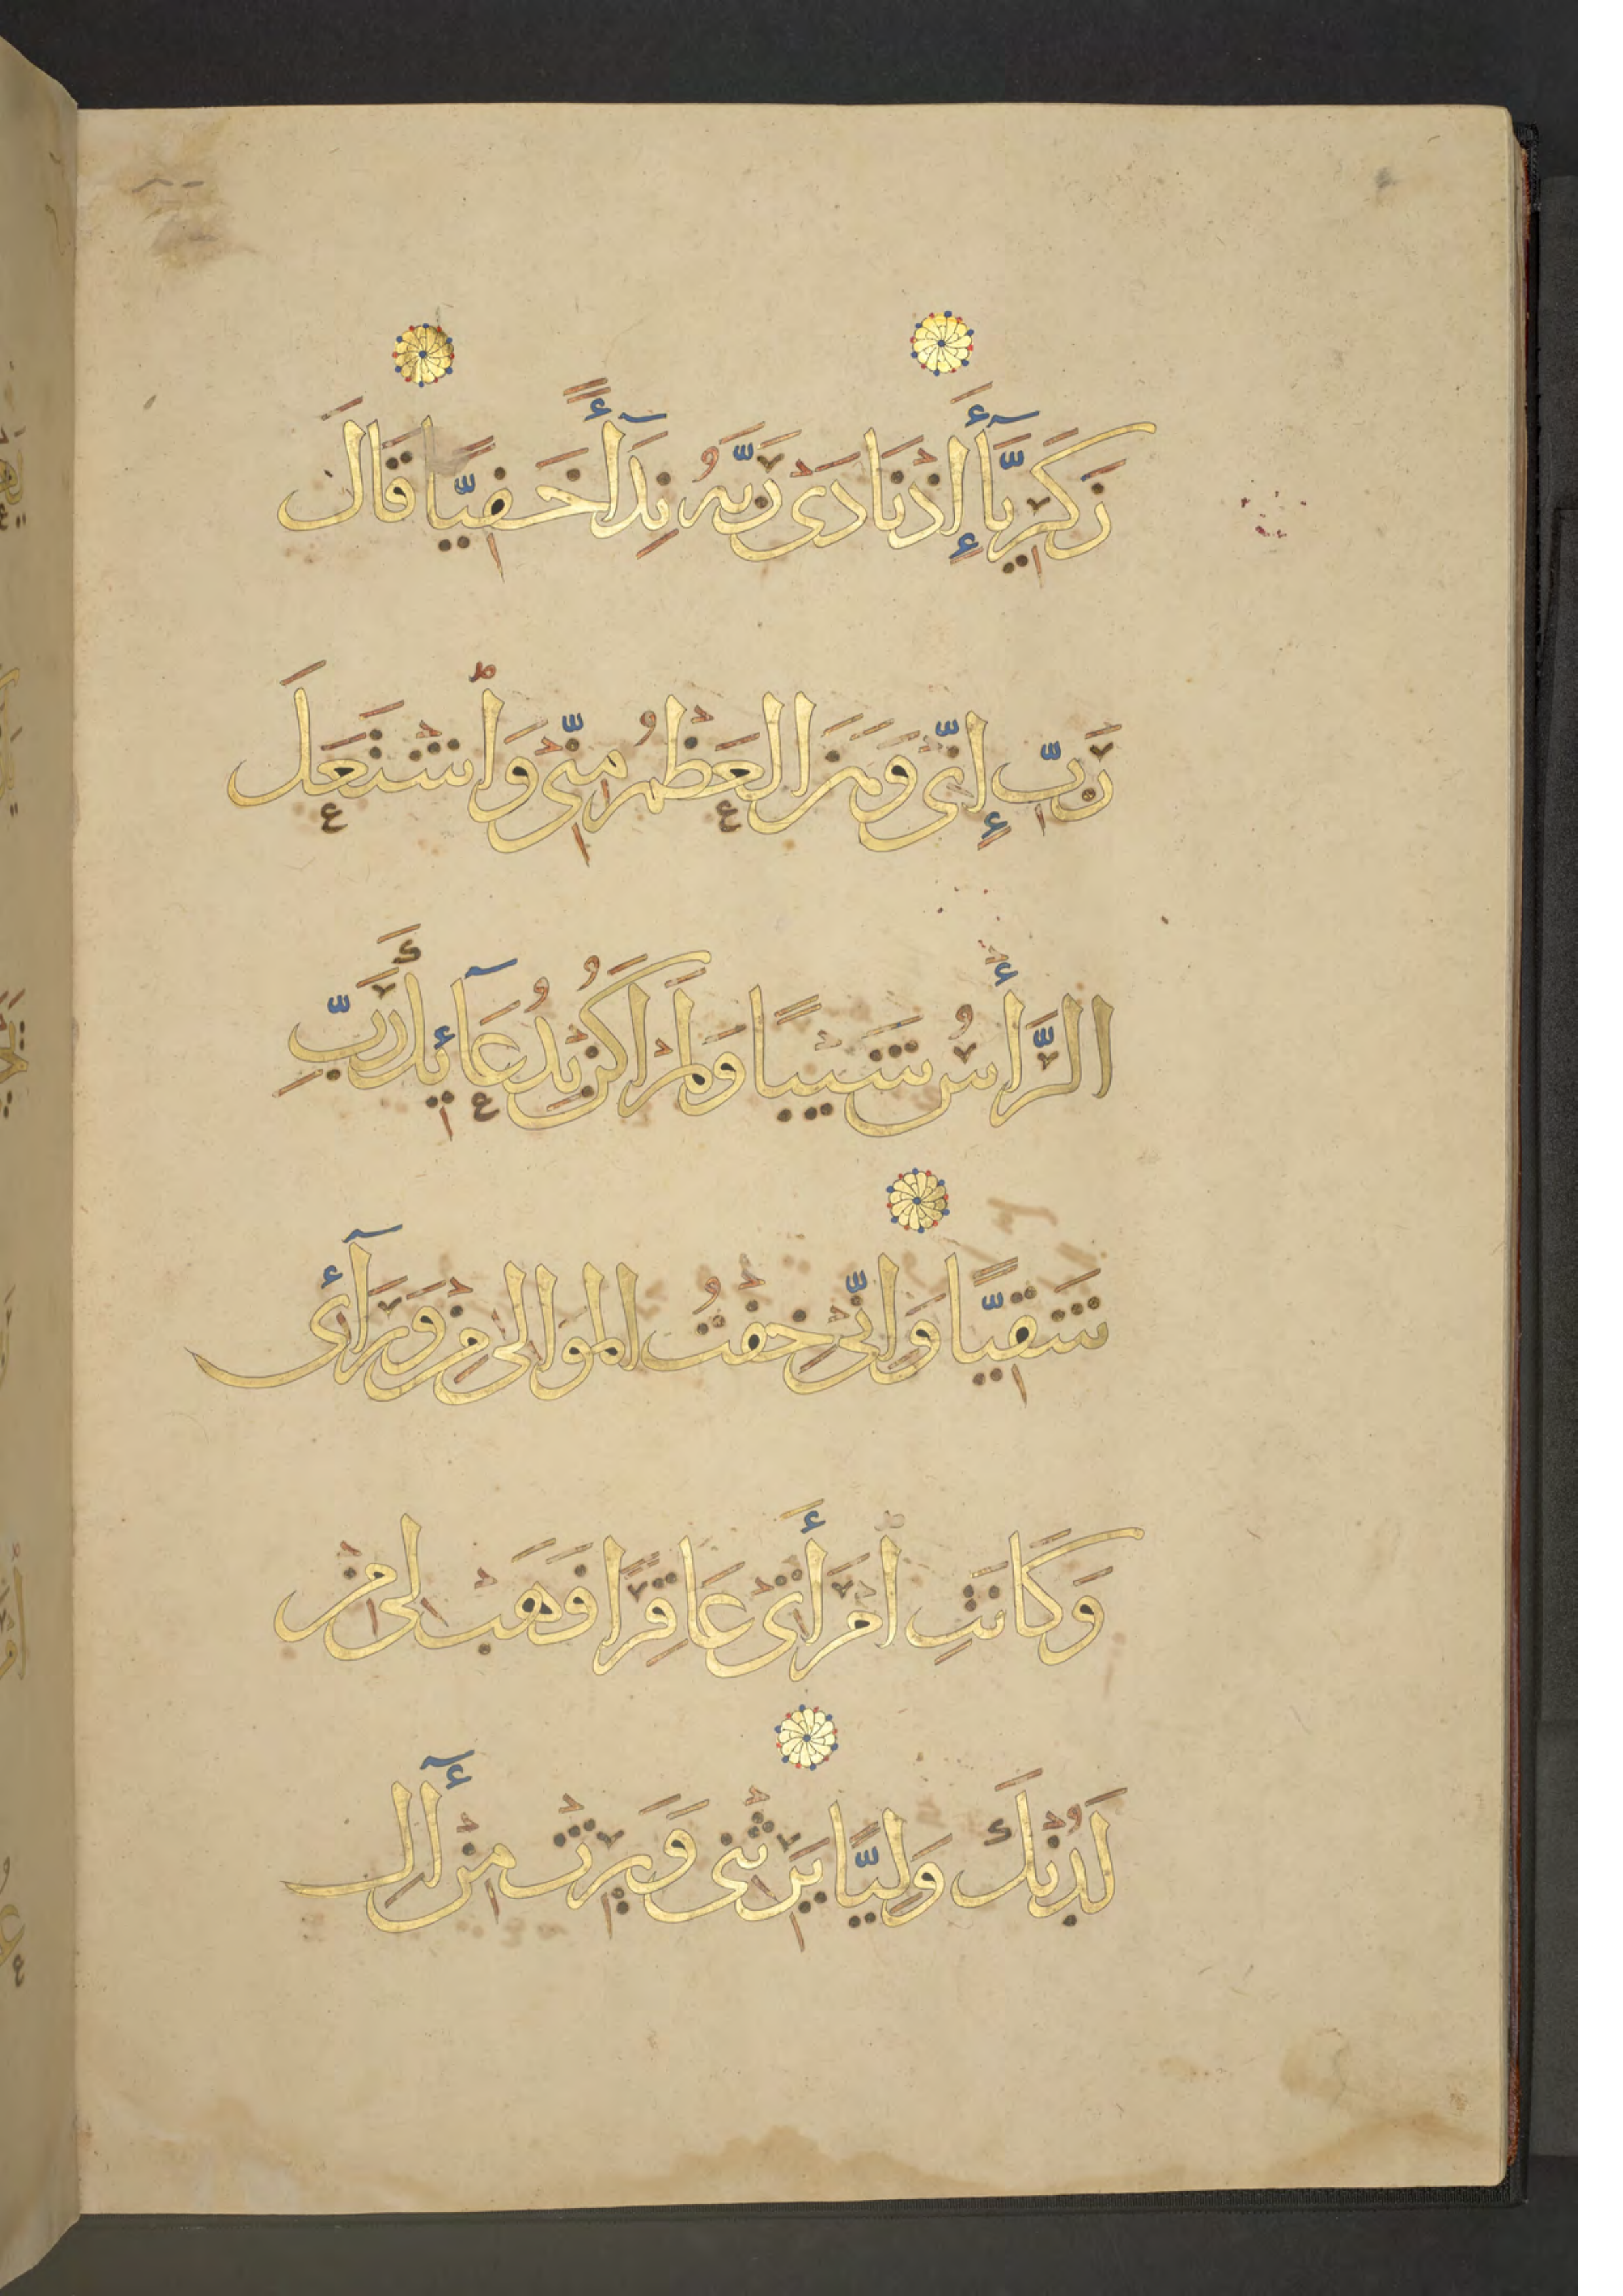 زَكَرِيَّآءَ إِذْ نَادَىٰ رَبَّهُ نِدَآءً خَفِيًّا قَالَ
رَبِّ إِنِّى وَهَنَ الْعَظْمُ مِنِّى وَاشْتَعَلَ
الرَّأْسُ شَيْبًا وَلَمْ أَكُنْ بِدُعَآئِكَ رَبِّ
شَقِيًّا وَإِنِّى خِفْتُ الْمَوَالِىَ مِنْ وَرَآئِى
وَكَانَتِ امْرَأَتِى عَاقِرًا فَهَبْ لِى مِنْ
لَدُنْكَ وَلِيًّا يَرِثْنِى وَيَرِثْ مِنْ آلِ